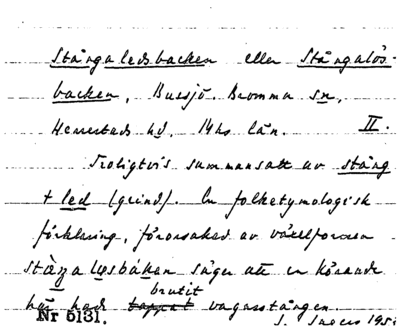 Stångaledsbacken eller Stångalös-
backen, Bussjö. Bromma sn,
Herrestads hd, Mhs län. II.
Troligtvis sammansatt av stång
+ led (grind). En folketymologisk
förklaring, förorsakad av växelformen
säger att en körande
här had brutit
toppat vagnsstången.
Nr 5131. S.